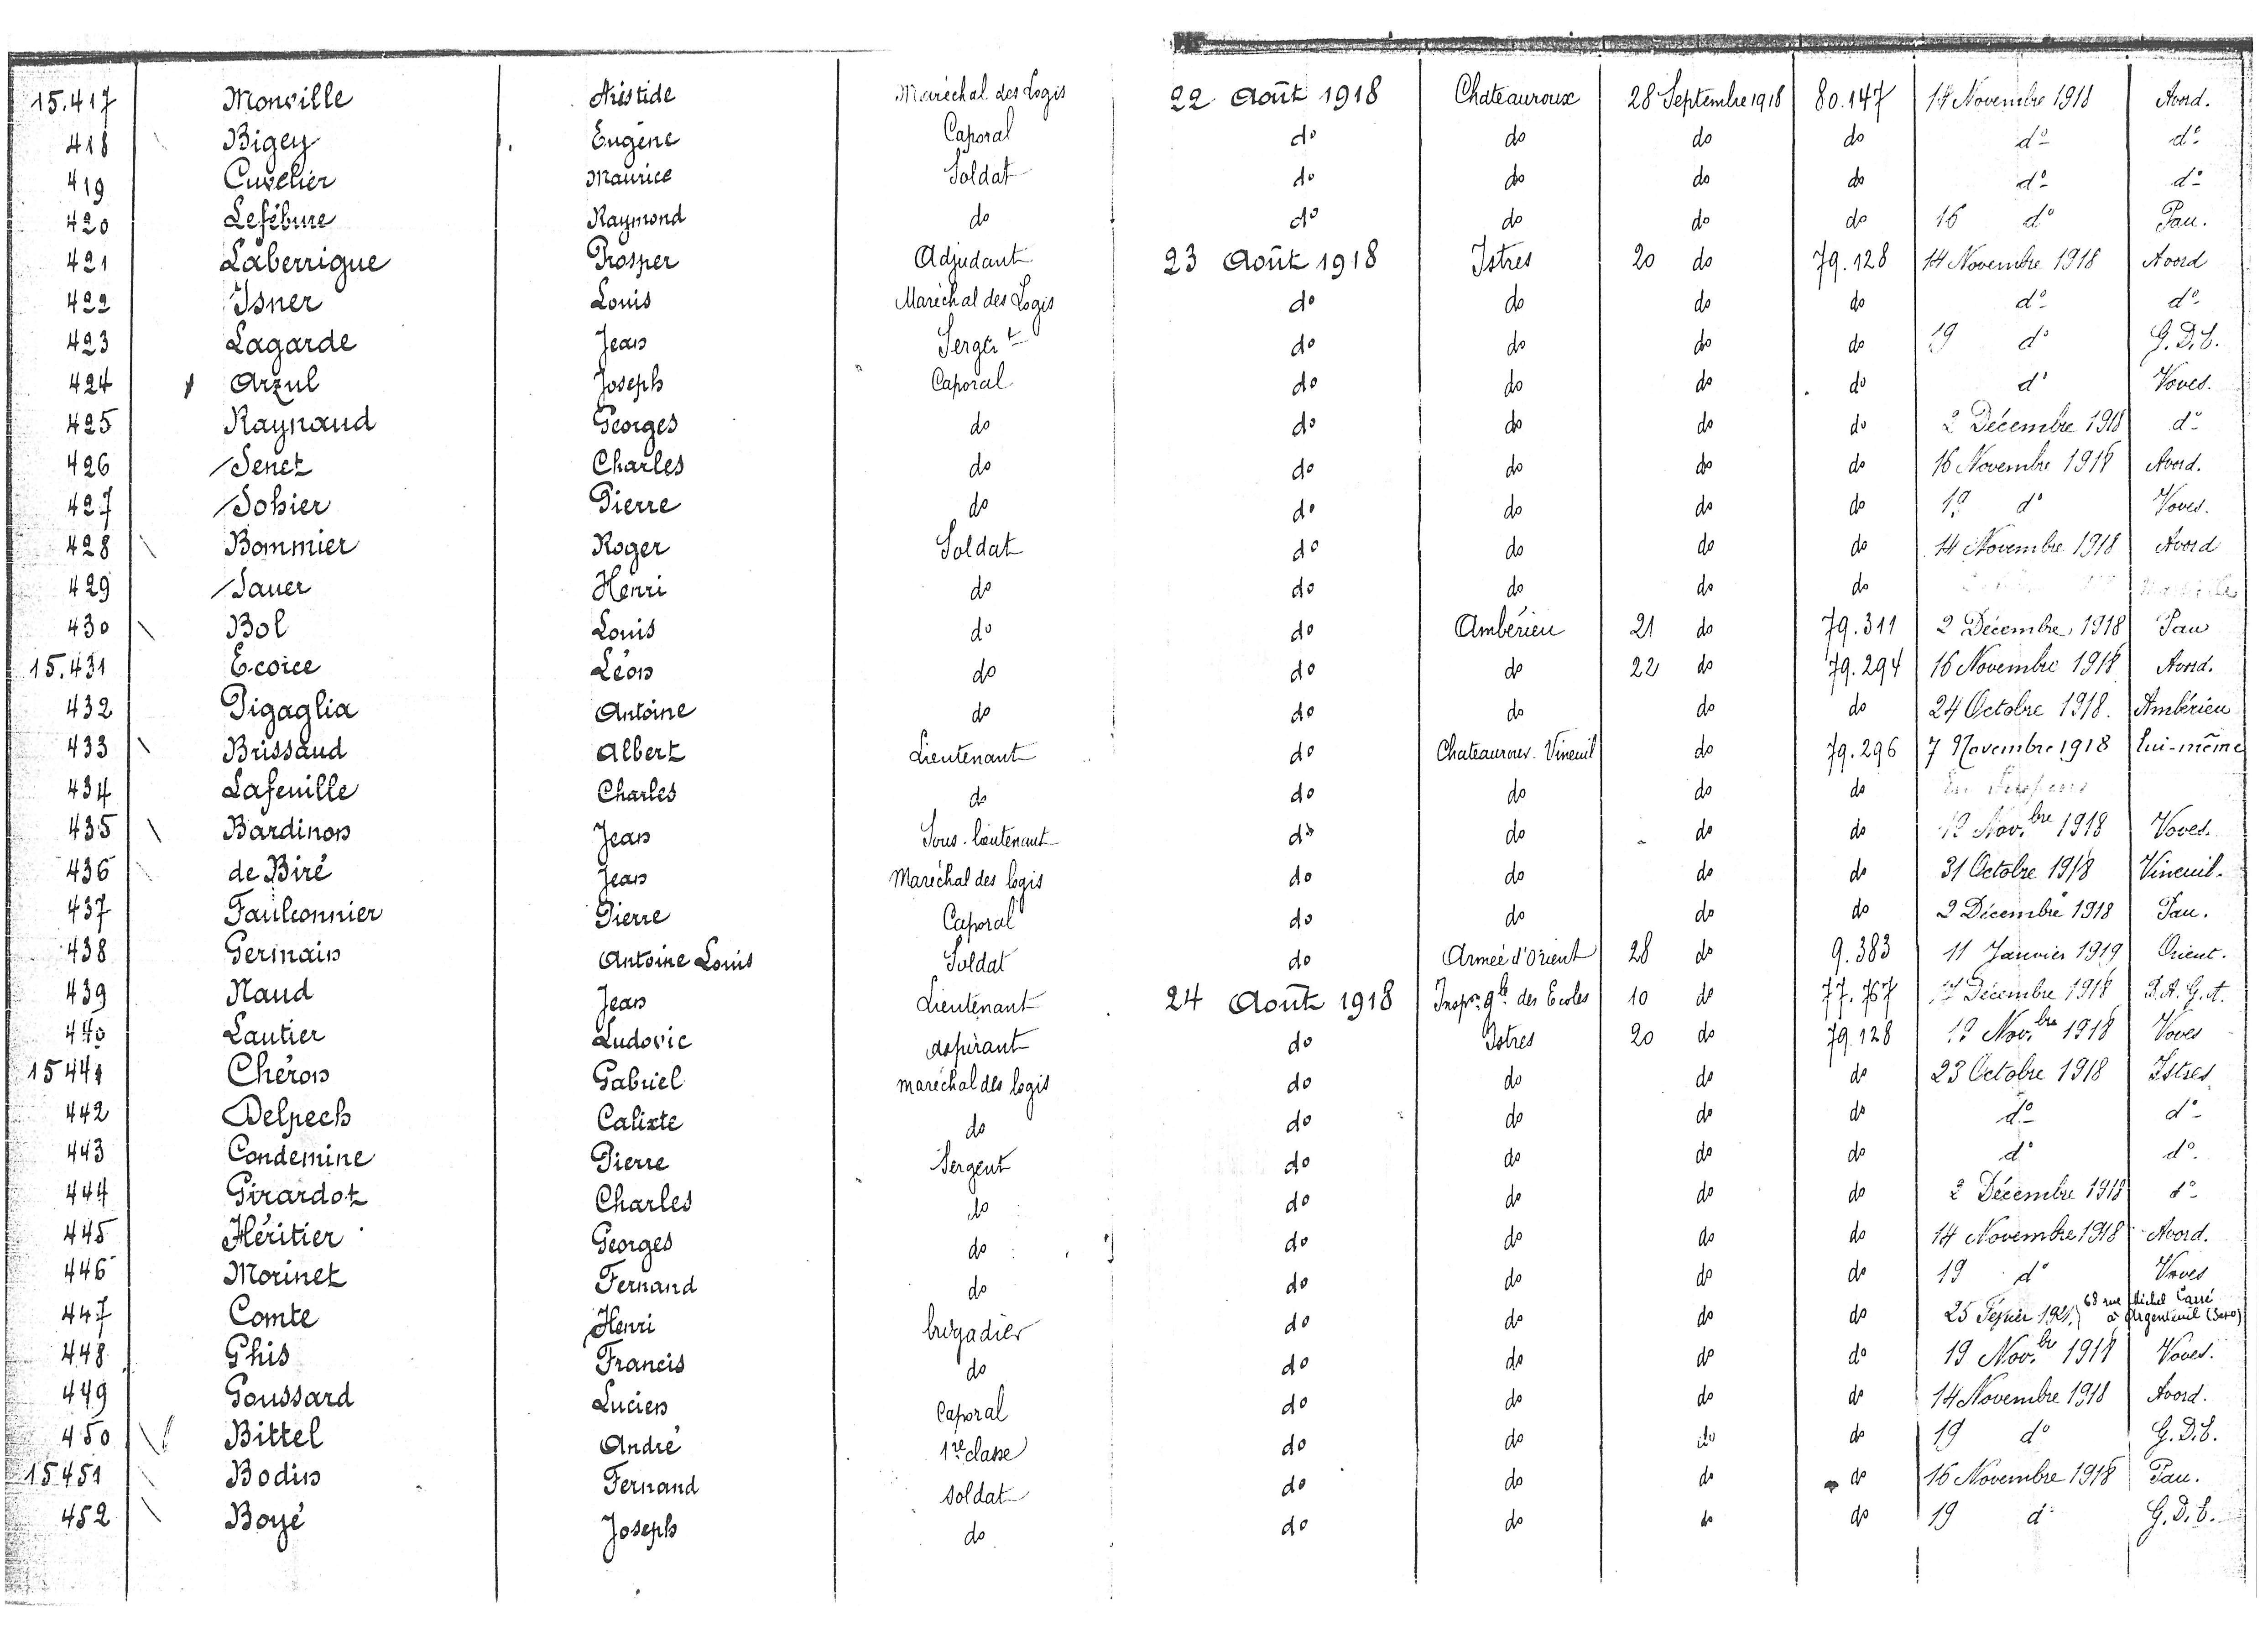 15.417 Monville Aristide Maréchal des Logis 22 Août 1918 Chateauroux 28 Septembre 1918 80.147 14 Novembre 1918 Avord.
418 Bigey Eugène Caporal do do do do do do
419 Cuvelier Maurice Soldat do do do do do do
420 Lefébure Raymond do do do do do 16 do Pau.
421 Laberrigue Prosper Adjudant 23 Août 1918 Istres 20 do 79.128 14 Novembre 1918 Avord
422 Isner Louis Maréchal des Logis do do do do do do
423 Lagarde Jean Sergent do do do do 19 do G.D.E.
424 Arzul Joseph Caporal do do do do do Voves.
425 Raynaud Georges do do do do do 2 Décembre 1918 do
426 Senet Charles do do do do do 16 Novembre 1918 Avord.
427 Sohier Pierre do do do do do 19 do Voves.
428 Bommier Roger Soldat do do do do 14 Novembre 1918 Avord
429 Sauer Henri do do do do do
430 Bol Louis do do Ambérieu 21 do 79.311 2 Décembre 1918 Pau
15.431 Ecoice Léon do do do 22 do 79.294 16 Novembre 1918 Avord.
432 Pigaglia Antoine do do do do do 24 Octobre 1918. Ambérieu
433 Brissaud Albert Lieutenant do Chateauroux-Vineuil do 79.296 7 Novembre 1918 lui-même
434 Lafeuille Charles do do do do do
435 Bardinon Jean Sous-lieutenant do do do do 19 Nov.bre 1918 Voves.
436 de Biré Jean Maréchal des logis do do do do 31 Octobre 1918 Vineuil.
437 Faulconnier Pierre Caporal do do do do 2 Décembre 1918 Pau.
438 Germain Antoine Louis Soldat do Armée d'Orient 28 do 9.383 11 Janvier 1919 Orient.
439 Naud Jean Lieutenant 24 Août 1918 Inspon gle des Ecoles 10 do 77.767 17 Décembre 1918 R.A.G.A.
440 Lautier Ludovic aspirant do Istres 20 do 79.128 19 Nov.bre 1918 Voves
15441 Chéron Gabriel maréchal des logis do do do do 23 Octobre 1918 Istres
442 Delpech Calixte do do do do do do do
443 Condemine Pierre Sergent do do do do do do
444 Girardot Charles do do do do do 2 Décembre 1918 do
445 Héritier Georges do do do do do 14 Novembre 1918 Avord.
446 Morinet Fernand do do do do do 19 do Voves
447 Comte Henri brigadier do do do do 25 Février 68 rue Michel Carré
à Argenteuil (S&O)
448 Ghis Francis do do do do do 19 Nov.bre 1918 Voves.
449 Goussard Lucien Caporal do do do do 14 Novembre 1918 Avord.
450 Bittel André 1re classe do do do do 19 do G.D.E.
15451 Bodin Fernand soldat do do do do 16 Novembre 1918 Pau.
452 Boyé Joseph do do do do do 19 do G.D.E.